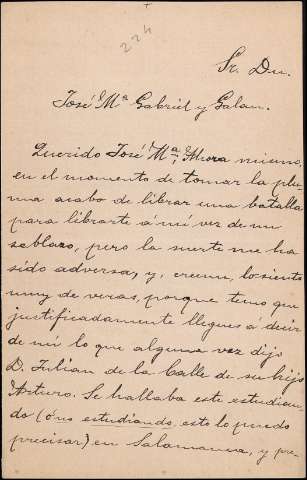 224
Sr. Dn.
José Mª Gabriel y Galan.
Querido José Mª: Ahora mismo,
en el momento de tomar la plu-
ma acabo de librar una batalla
para librarte á mi vez de un
sablazo, pero la suerte me ha
sido adversa, y, creeme, lo siento
muy de veras, porque temo que
justificadamente llegues á decir
de mi lo que alguna vez dijo
D. Julian de la Calle de su hijo
Arturo. Se hallaba este estudian-
do (ó no estudiando, esto lo puedo
precisar) en Salamanca, y pre-